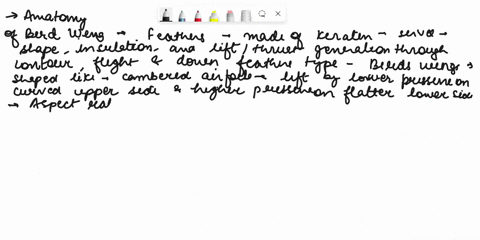 → Anatomy
of Bird Wing → Feathers → made of keratin - serve -
shape, insulation, and lift/thrust generation through
contour, flight & down feather type - Birds wings →
shaped like → cambered airfoil → lift by lower pressure on
curved upper side & higher pressure on flatter lower side
→ Aspect rat